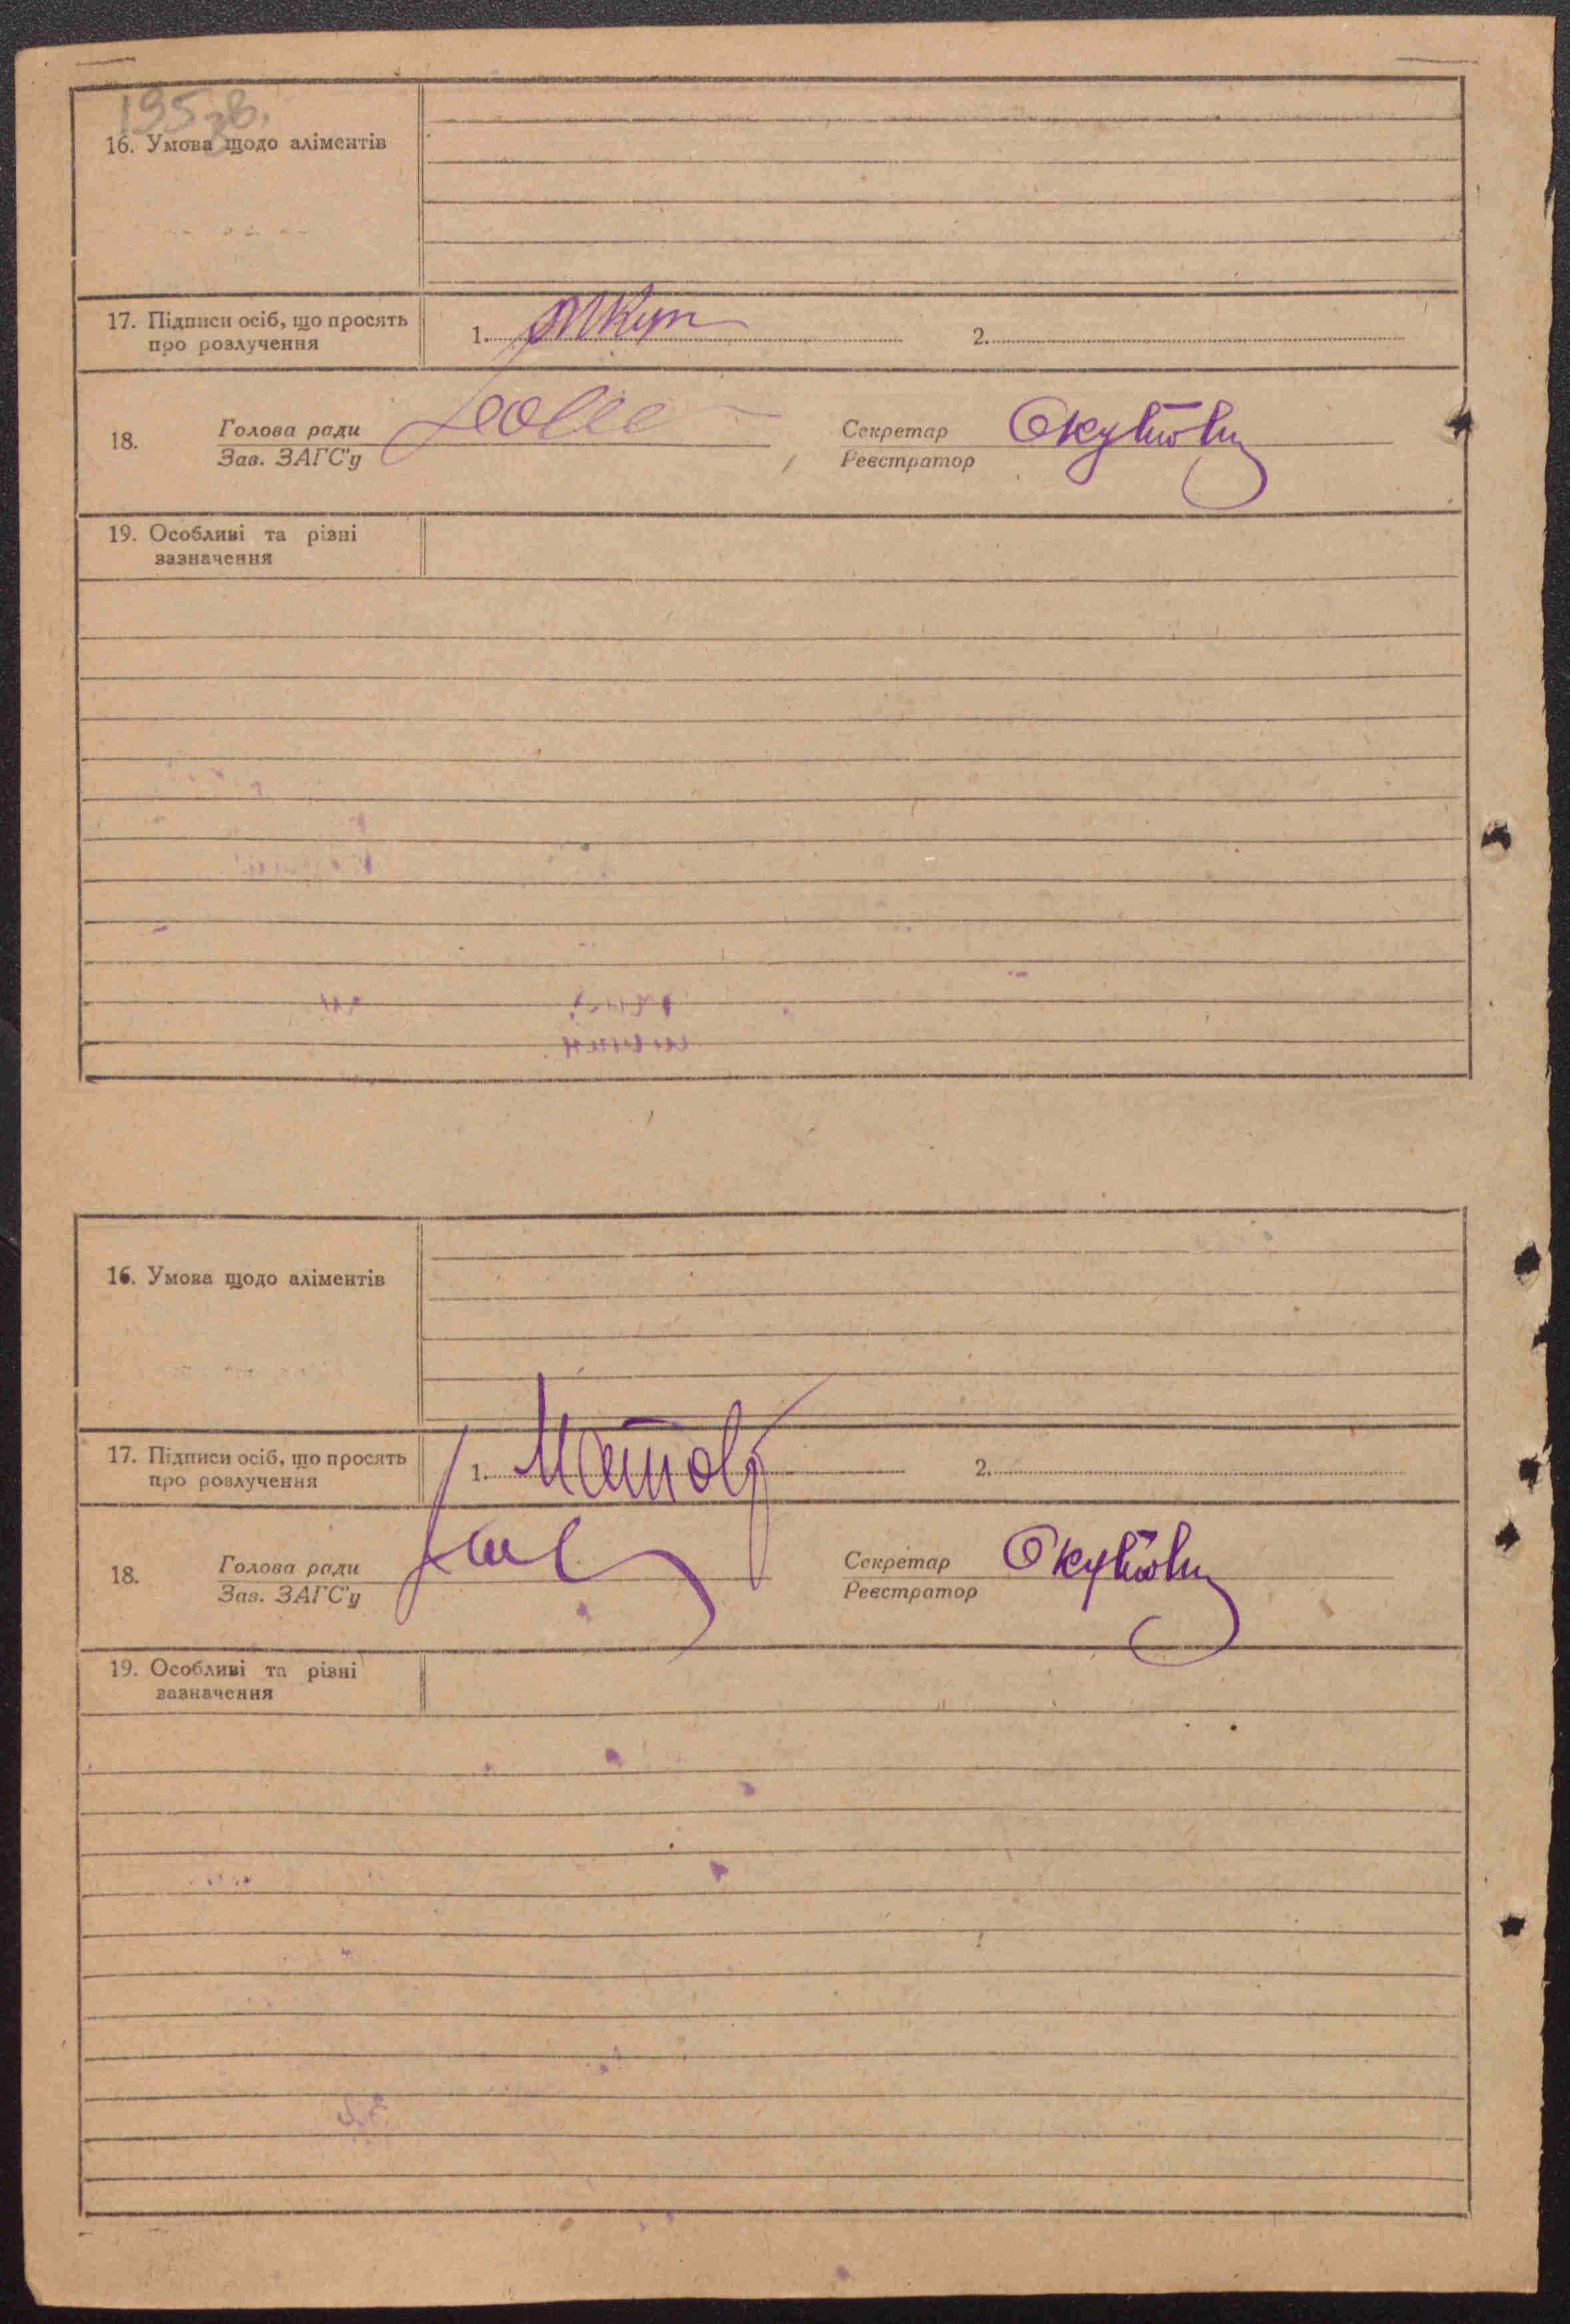 16. Умова щодо аліментів
17. Підписи осіб, що просять
про розлучення
1.
2.
18.
Голова ради
Зав. ЗАГС'у
Секретар
Реєстратор
19. Особливі та різні
зазначення
16. Умова щодо аліментів
17. Підписи осіб, що просять
про розлучення
1.
2.
18.
Голова ради
Зав. ЗАГС'у
Секретар
Реєстратор
19. Особливі та різні
зазначення